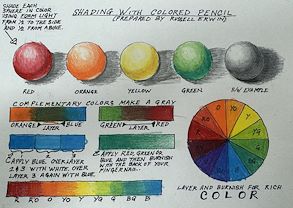 SHADING WITH COLORED PENCIL
(PREPARED BY RUSSELL ERWIN)
SHADE EACH
SPHERE IN COLOR
USING FORM LIGHT
FROM ½ TO THE SIDE
AND ½ FROM ABOVE.
RED ORANGE YELLOW GREEN B/W EXAMPLE
COMPLEMENTARY COLORS MAKE A GRAY
ORANGE BLUE GREEN RED
LAYER LAYER
APPLY BLUE, OVERLAYER
2 & 3 WITH WHITE, OVER
LAYER 3 AGAIN WITH BLUE.
APPLY RED, GREEN OR
BLUE AND THEN BURNISH
WITH THE BACK OF YOUR
FINGERNAIL.
R RO O YO Y YG G BG B
R O YO Y YG G
LAYER AND BURNISH FOR RICH
COLOR